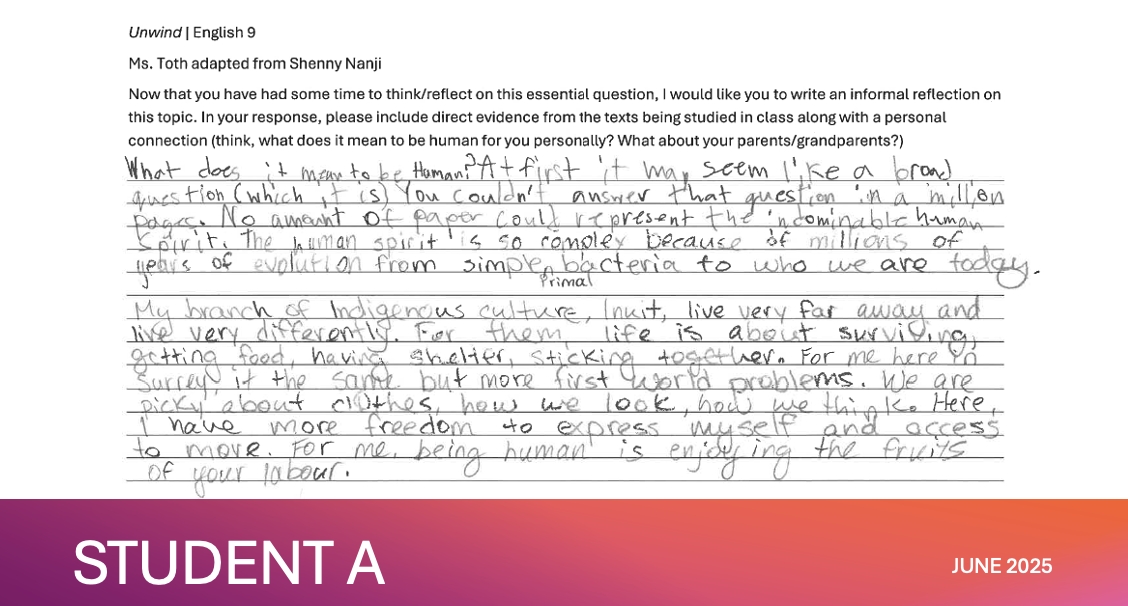 Unwind | English 9
Ms. Toth adapted from Shenny Nanji
Now that you have had some time to think/reflect on this essential question, I would like you to write an informal reflection on
this topic. In your response, please include direct evidence from the texts being studied in class along with a personal
connection (think, what does it mean to be human for you personally? What about your parents/grandparents?)
What does it mean to be Human? At first it may seem like a broad
question (which it is) You couldn't answer that question in a million
pages. No amount of paper could represent the indominable human
Spirit. The human spirit is so complex because of millions of
years of evolution from simple, bacteria to who we are today.
Primal
My branch of Indigenous culture, Inuit, live very far away and
live very differently. For them, life is about surviving,
getting food, having shelter, sticking together. For me here in
Surrey it the same but more first world problems. We are
picky about clothes, how we look, how we think. Here,
I have more freedom to express myself and access
to more. For me, being human is enjoying the fruits
of your labour.
STUDENT A
JUNE 2025